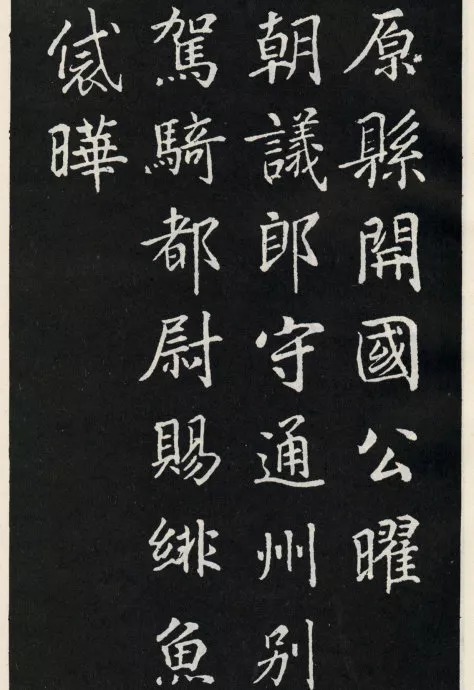 原縣開國公曜
朝議郎守通州别
駕騎都尉賜緋魚
袋曄